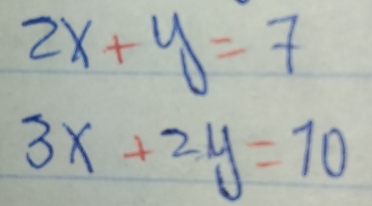 2x + y = 7
3x + 2y = 10